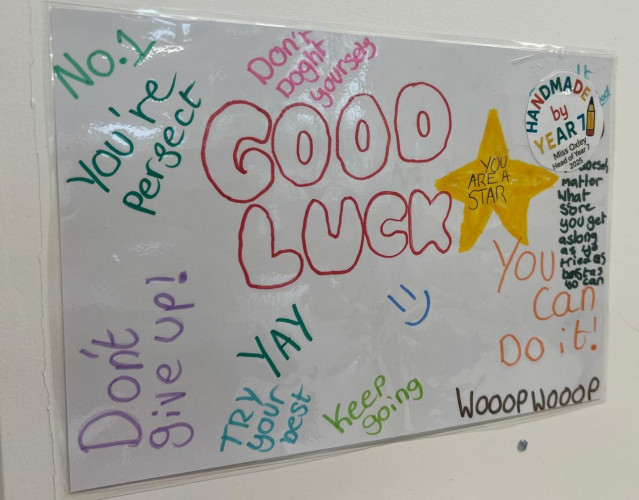 No.1
You're
Persect
Don't
Doght
yoursels
GOOD
LUCK
YOU
ARE A
STAR
It
HANDMADE
by
YEAR 7
Miss Oxley
Head of Year 7
2025
matter
what
Sore
you get
aslong
as you
tried as
best as
you can
YOU
Can
Do it!
Don't
give up!
YAY
TRY
your
best
Keep
going
WOOOPWOOOP